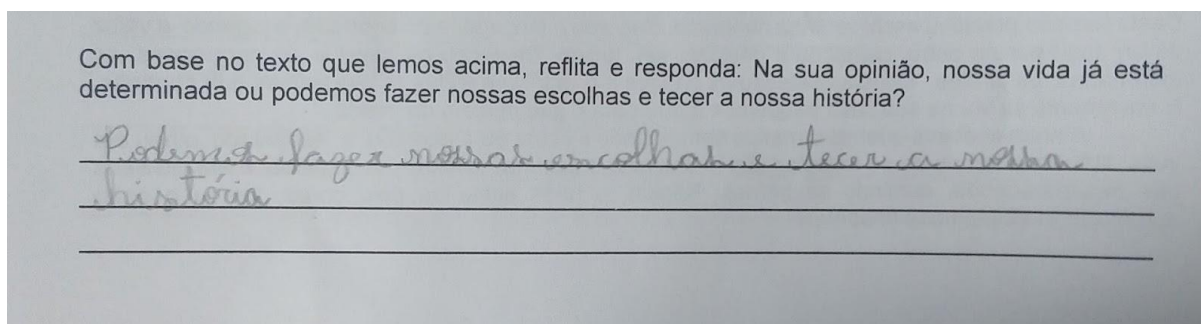 Com base no texto que lemos acima, reflita e responda: Na sua opinião, nossa vida já está
determinada ou podemos fazer nossas escolhas e tecer a nossa história?
Podemos fazer nossas escolhas e tecer a nossa
história